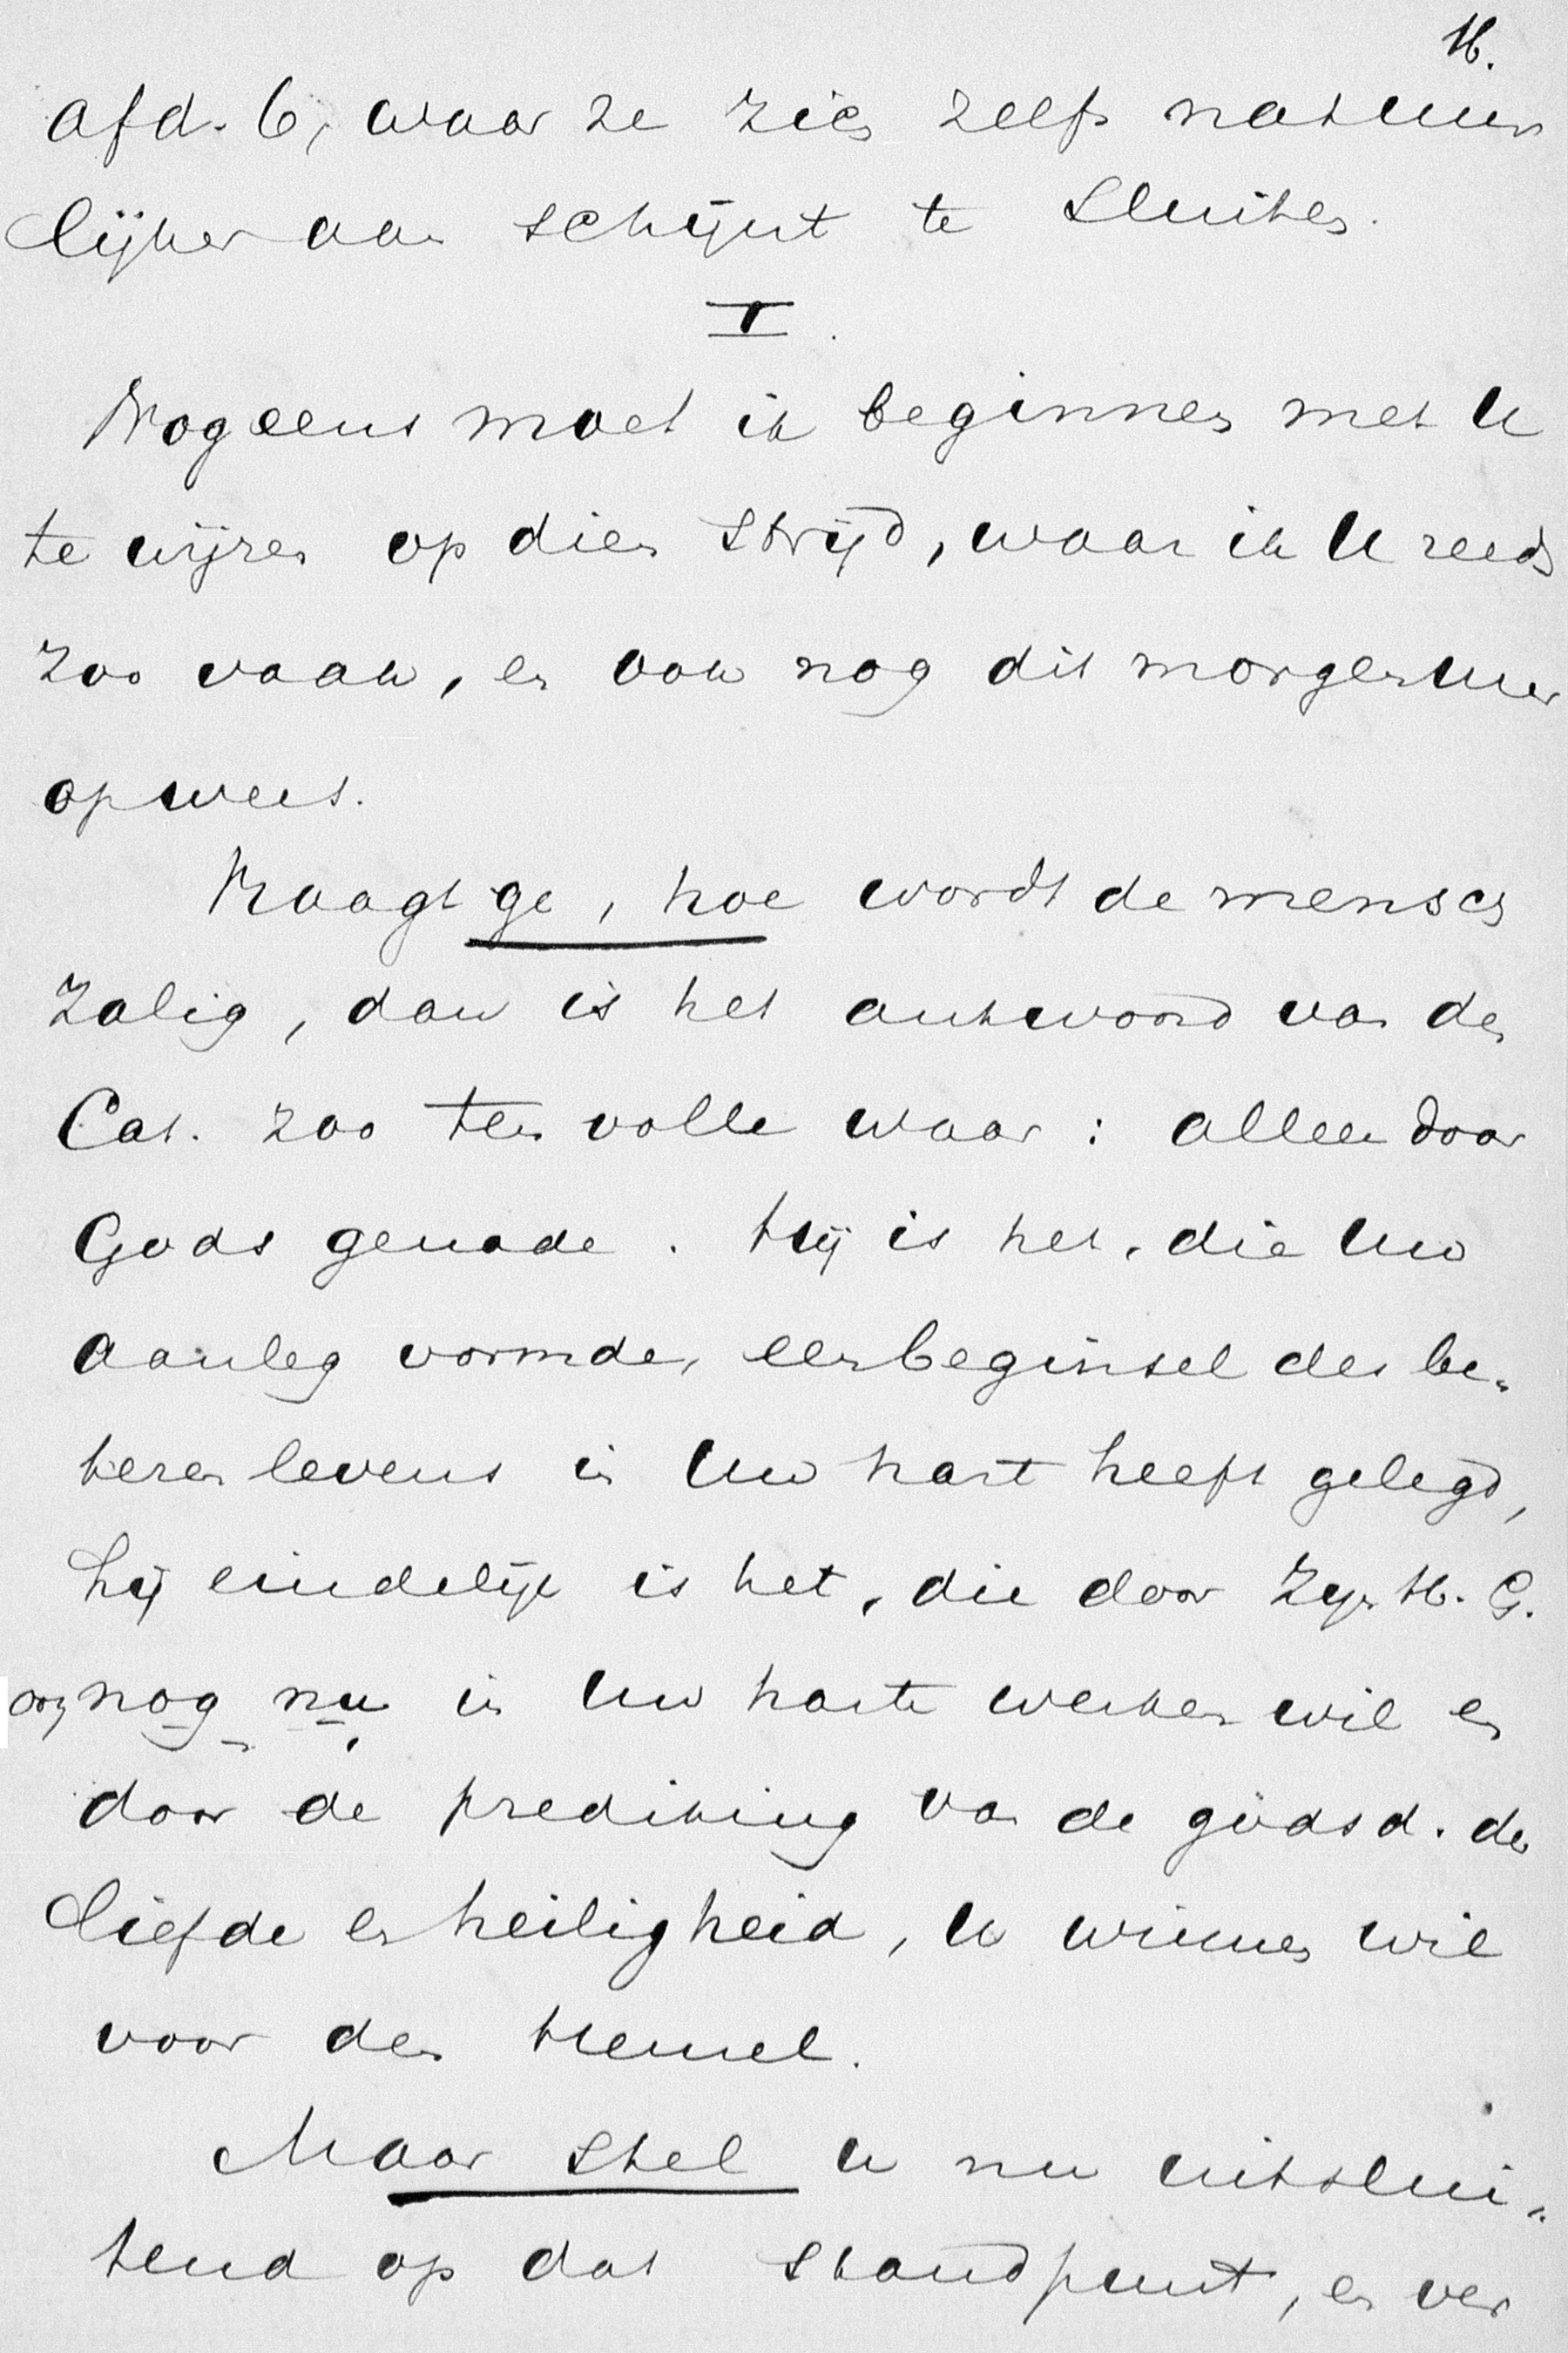 H.
afd. 6, waar ze zich zelfs natuur
lijker aan schijnt te sluiten.
I.
Nogeens moet ik beginnen met U
te wijzen op dien strijd, waar ik U reeds
zoo vaak, en ook nog dit morgenuur
op wees.
Vraagt ge, hoe wordt de mensch
zalig, dan is het antwoord van den
Cat. zoo ten volle waar: alleen door
Gods genade. Hij is het, die Uw
aanleg vormde, een beginsel des be-
teren levens in Uw hart heeft gelegd,
hij eindelijk is het, die door Zijn H. G.
ook nog nu in Uw harte werken wil en
door de prediking van de godsd. der
liefde en heiligheid, U winnen wil
voor den hemel.
Maar stel U nu uitslui-
tend op dat standpunt, en ver